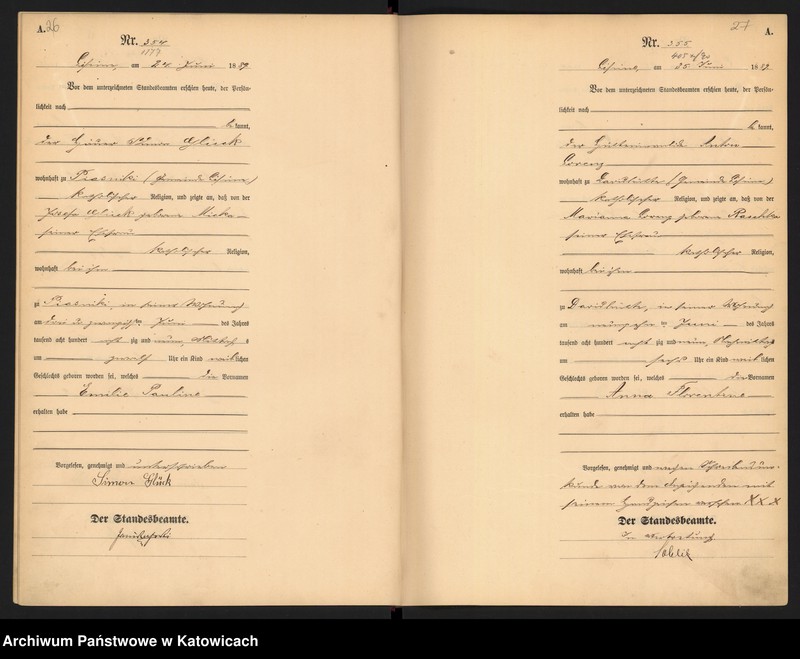 A. 26
Nr. 354
1177
am 24. Juni 1889
Vor dem unterzeichneten Standesbeamten erschien heute, der Persön-
lichkeit nach
be kannt,
der Häuer Simon Glück
wohnhaft zu Piasniki (Gemeinde Lipine)
katholischer Religion, und zeigte an, daß von der
Josefa Glück geborene
seiner Ehefrau
katholischer Religion,
wohnhaft bei ihm
zu Piasniki, in seiner Wohnung
am drei u. zwanzigsten Juni des Jahres
tausend acht hundert acht zig und neun, Mittags
am zwölf Uhr ein Kind weib lichen
Geschlechts geboren worden sei, welches die Vornamen
Emilie Pauline
erhalten habe
Vorgelesen, genehmigt und unterschrieben
Simon Glück
Der Standesbeamte.
27 A.
Nr. 355
Lipine, am 25. Juni 1889
Vor dem unterzeichneten Standesbeamten erschien heute, der Persön-
lichkeit nach
be kannt,
der Anton
Lorenz
wohnhaft zu Davidhütte (Gemeinde Lipine)
katholischer Religion, und zeigte an, daß von der
Marianna Lorenz geborene
seiner Ehefrau
katholischer Religion,
wohnhaft bei ihm
zu Davidhütte, in seiner Wohnung
am neunzehn ten Juni des Jahres
tausend acht hundert acht zig und neun, Nachmittags
am sechs Uhr ein Kind weib lichen
Geschlechts geboren worden sei, welches die Vornamen
Anna Florentine
erhalten habe
Vorgelesen, genehmigt und wegen Schreibensun-
kunde von dem Anzeigenden mit
seinem Handzeichen versehen XXX
Der Standesbeamte.
In Vertretung
Archiwum Państwowe w Katowicach